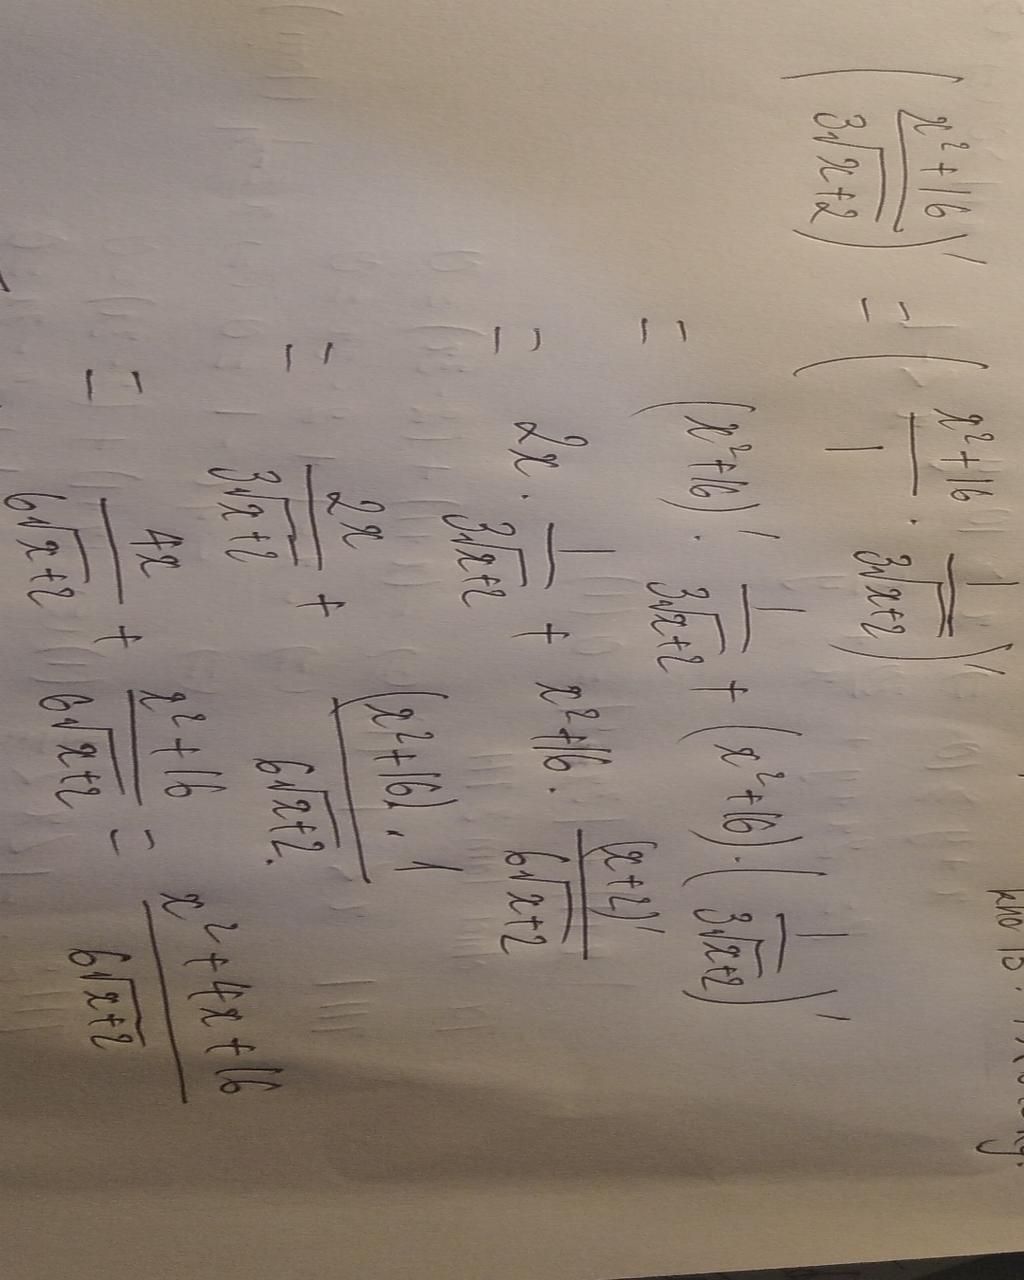 ((x²+16)/(3√(x+2)))' = ((x²+16)/1 · 1/(3√(x+2)))'
= (x²+16)' · 1/(3√(x+2)) + (x²+16) · (1/(3√(x+2)))'
= 2x · 1/(3√(x+2)) + x²+16 · (x+2)'/(6√(x+2))
= 2x/(3√(x+2)) + ((x²+16) · 1)/(6√(x+2))
= 4x/(6√(x+2)) + (x²+16)/(6√(x+2)) = (x²+4x+16)/(6√(x+2))